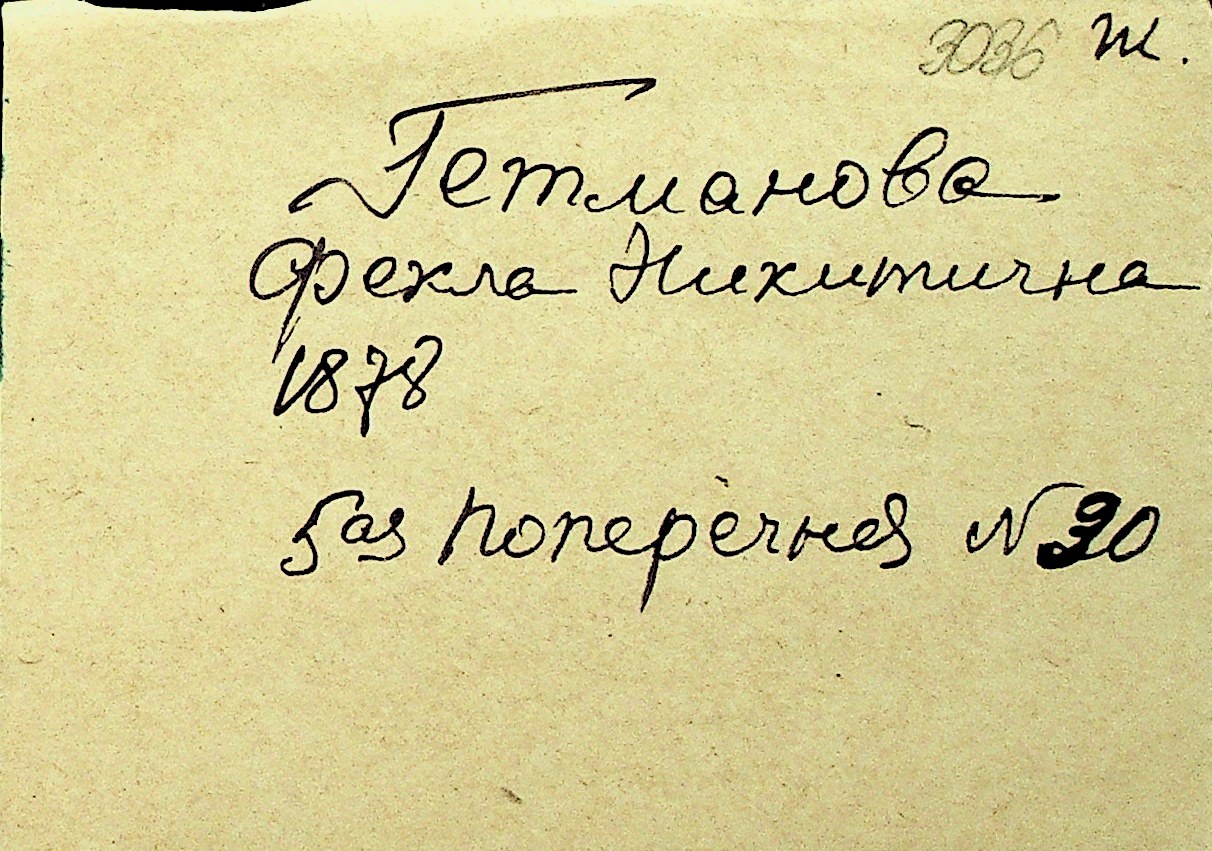 3036 Ж.
Гетманова
Фекла Никитична
1878
5ая Поперечная № 30